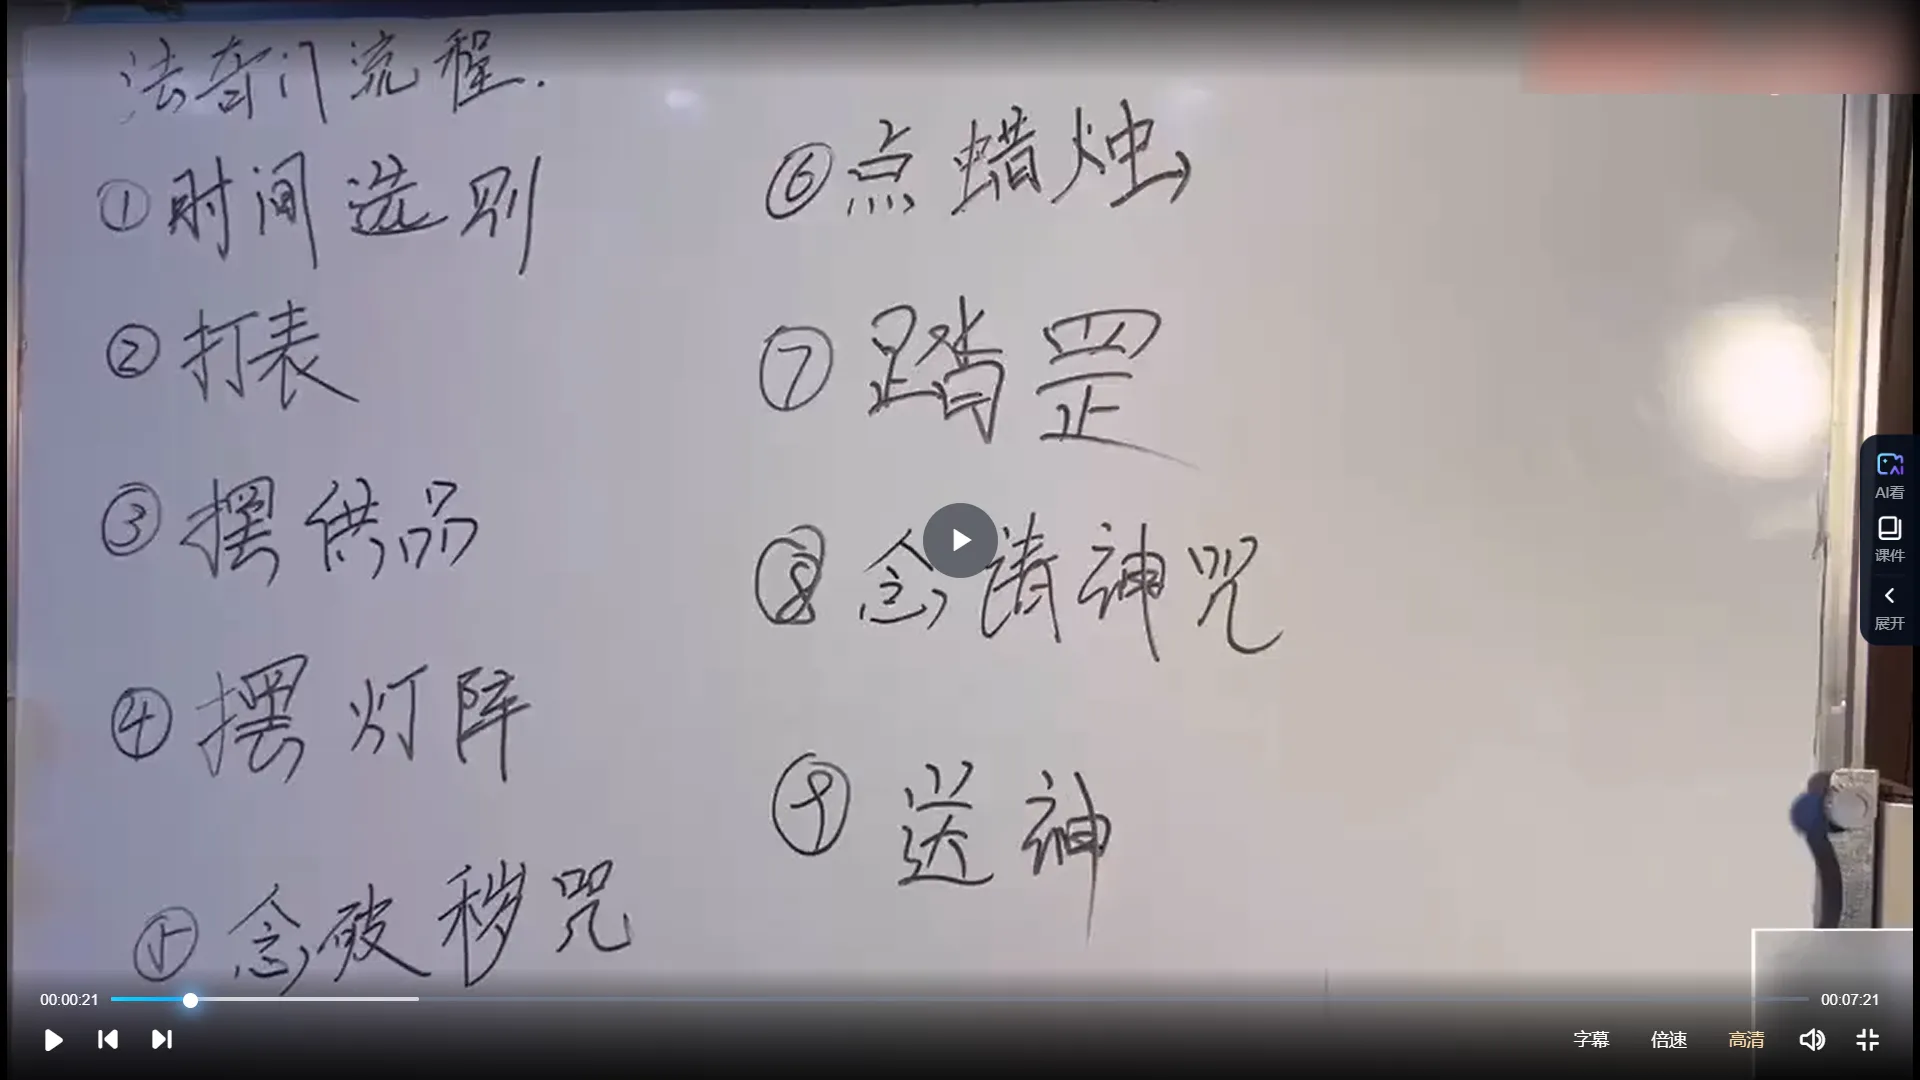 法奇门流程.
①时间选别
②打表
③摆供品
④摆灯阵
⑤念破秽咒
⑥点蜡烛
⑦踏罡
⑧念请神咒
⑨送神
AI看
课件
展开
00:00:21
00:07:21
字幕 倍速 高清